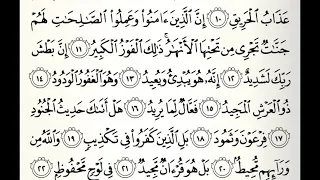 عَذَابُ ٱلْحَرِيقِ ۝١٠ إِنَّ ٱلَّذِينَ ءَامَنُوا۟ وَعَمِلُوا۟ ٱلصَّـٰلِحَـٰتِ لَهُمْ
جَنَّـٰتٌ تَجْرِى مِن تَحْتِهَا ٱلْأَنْهَـٰرُ ۚ ذَٰلِكَ ٱلْفَوْزُ ٱلْكَبِيرُ ۝١١ إِنَّ بَطْشَ
رَبِّكَ لَشَدِيدٌ ۝١٢ إِنَّهُۥ هُوَ يُبْدِئُ وَيُعِيدُ ۝١٣ وَهُوَ ٱلْغَفُورُ ٱلْوَدُودُ ۝١٤
ذُو ٱلْعَرْشِ ٱلْمَجِيدُ ۝١٥ فَعَّالٌ لِّمَا يُرِيدُ ۝١٦ هَلْ أَتَىٰكَ حَدِيثُ ٱلْجُنُودِ
۝١٧ فِرْعَوْنَ وَثَمُودَ ۝١٨ بَلِ ٱلَّذِينَ كَفَرُوا۟ فِى تَكْذِيبٍ ۝١٩ وَٱللَّهُ مِن
وَرَآئِهِم مُّحِيطٌۢ ۝٢٠ بَلْ هُوَ قُرْءَانٌ مَّجِيدٌ ۝٢١ فِى لَوْحٍ مَّحْفُوظٍۭ ۝٢٢